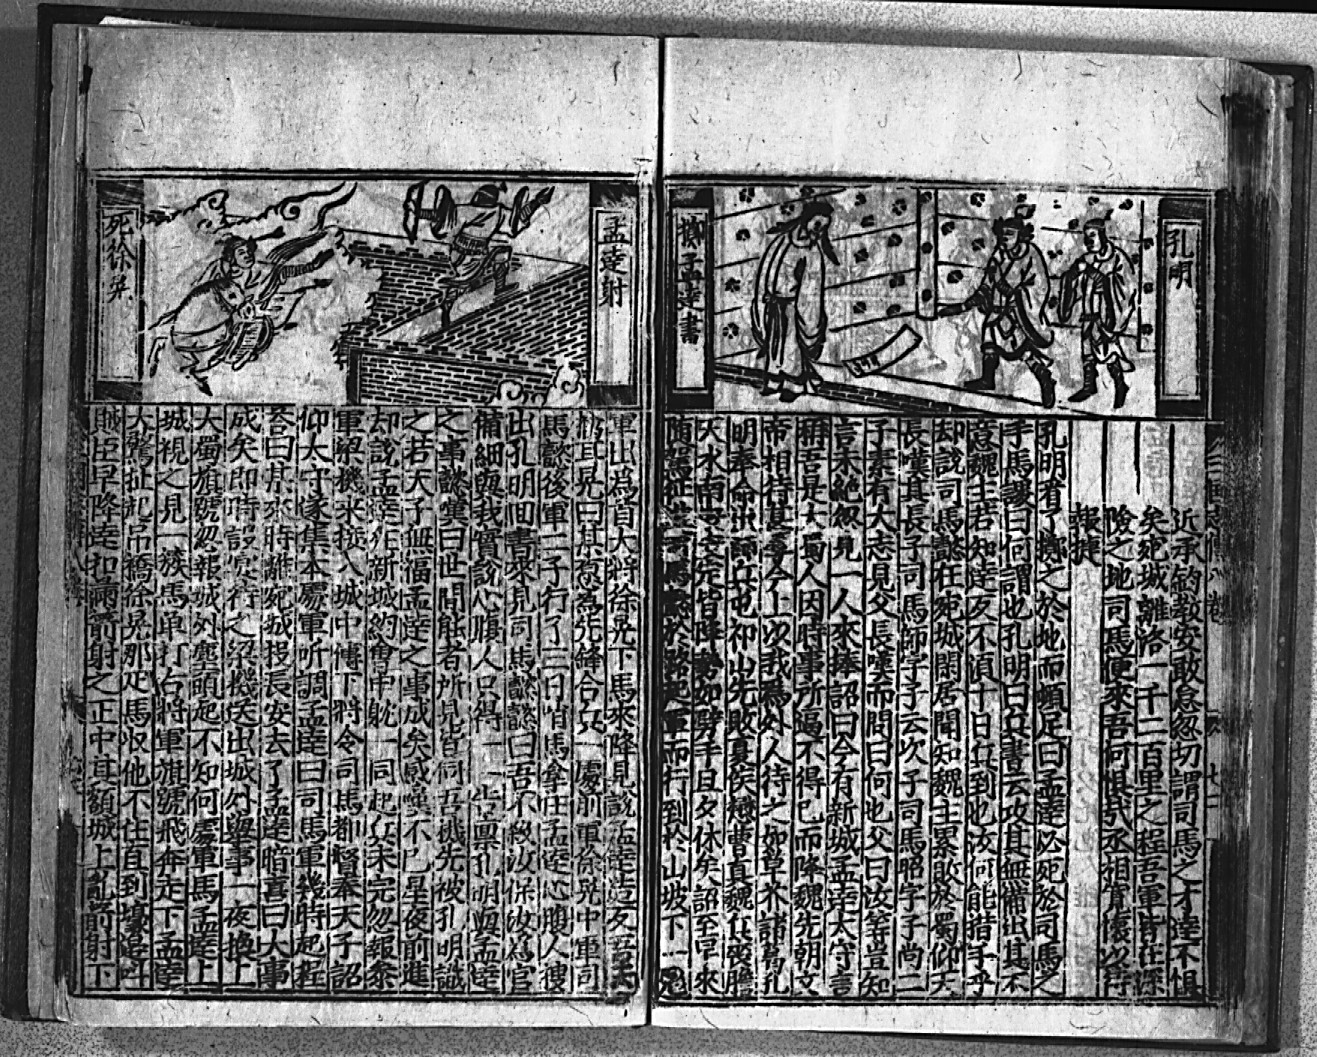 孔明
擲孟達書
近承鈞教安敢怠忽切謂司馬之才達不惧
矣宛城離洛一千二百里之程吾軍皆在深
險之地司馬便來吾何惧哉丞相寬懷以待
報捷
孔明看了擲之於地而頓足曰孟達必死於司馬之
手馬謖曰何謂也孔明曰兵書云攻其無備出其不
意魏主若知達反不湏十日兵到也汝何能措手乎
却說司馬懿在宛城閑居聞知魏主累敗於蜀仰天
長嘆其長子司馬師字子云次子司馬昭字子尚二
子素有大志見父長嘆而問曰何也父曰汝等豈知
言未絕忽見一人來捧詔曰今有新城孟達太守言
稱吾是大蜀人因時事所逼不得已而降魏先朝文
帝相待甚厚今上以我為外人待之如草芥諸葛孔
明奉命出師兵屯祁山先敗夏侯楙曹真魏兵喪膽
天水南安安定皆降勢如劈手旦夕休矣詔至早來
隨駕征進司馬懿於路起軍而行到於山坡下
孟達射
死徐晃
軍出為首大將徐晃下馬來降見說孟達造反吾
親且晃曰某願為先鋒合兵一處前軍徐晃中軍司
馬懿後軍二子行了三日哨馬拿住孟達心腹人搜
出孔明回書來見司馬懿懿曰吾不殺汝保汝為官
備細與我實說心腹人只得一一告禀孔明與孟達
之事懿嘆曰世間能者所見皆同吾機先被孔明識
之若天子無福孟達之事成矣感嘆不已星夜前進
却說孟達在新城約會申躭一同起兵未完忽報參
軍梁機來徑入城中傳下將令司馬都督奉天子詔
仰太守遂集本處軍听調孟達曰司馬軍幾時起程
答曰某來時離宛城投長安去了孟達暗喜曰大事
成矣即時設宴待之梁機送出城外舉事一夜換上
大蜀旗號忽報城外塵頭起不知何處軍馬孟達上
城視之見一簇馬单打右將軍旗號飛奔走下孟達
大驚扯起吊橋徐晃那疋馬收他不住直到壕邊叫
賊臣早降達扣滿箭射之正中其額城上亂箭射下